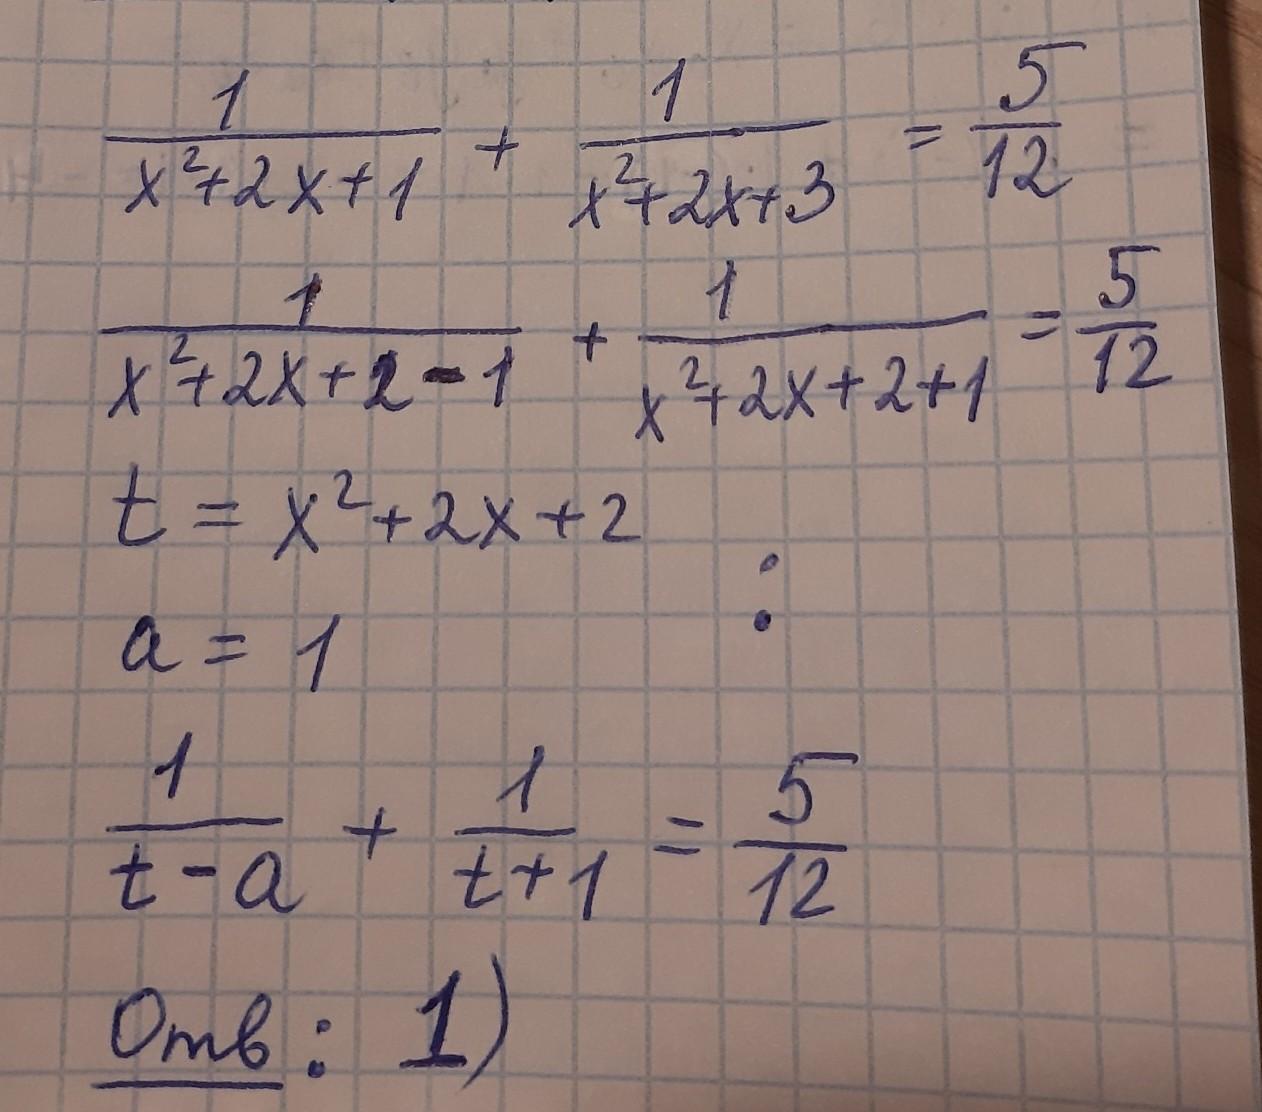 1/(x²+2x+1) + 1/(x²+2x+3) = 5/12
1/(x²+2x+2-1) + 1/(x²+2x+2+1) = 5/12
t = x²+2x+2
a = 1 :
1/(t-a) + 1/(t+1) = 5/12
Отв: 1)